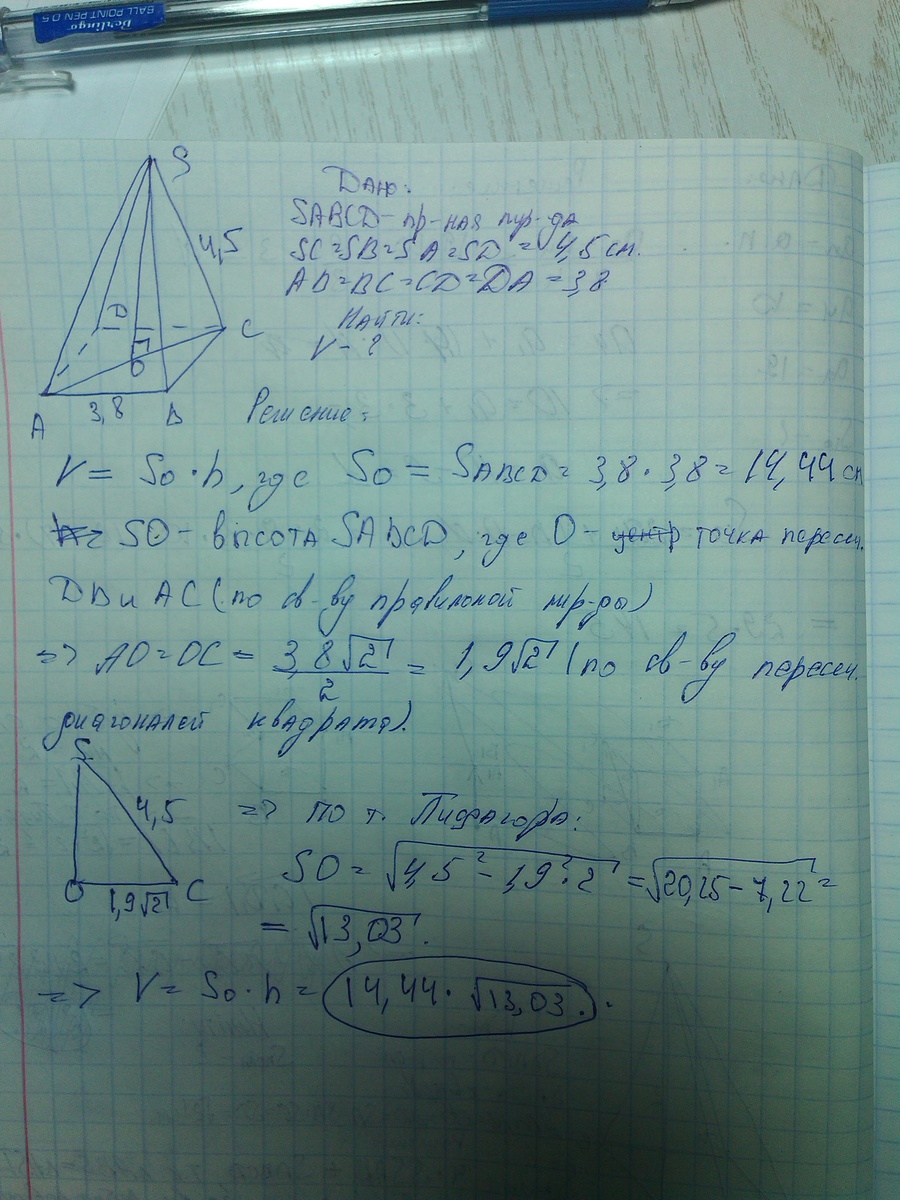 Berlingo
BALL POINT PEN 0.5
S
4,5
D
C
O
A
3,8
B
Дано:
SABCD - пр-ная пир-да
SC=SB=SA=SD = 4,5 см.
AB=BC=CD=DA = 3,8
Найти:
V - ?
Решение:
V = So · h, где So = SABCD = 3,8 · 3,8 = 14,44 см
SO - высота SABCD, где O - центр точка пересеч.
DB и AC (по св-ву правильной пир-ды)
=> AO=OC = 3,8√2 / 2 = 1,9√2 (по св-ву пересеч.
диагоналей квадрата).
S
4,5
O
1,9√2
C
=> по т. Пифагора:
SO = √4,5² - 1,9²·2 = √20,25 - 7,22 =
= √13,03.
=> V = So · h = 14,44 · √13,03.